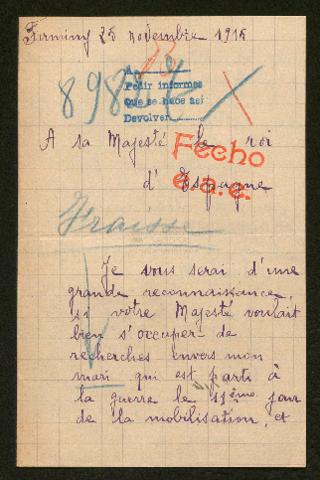 Firminy 25 novembre 1915
Pedir informes
Que se hace así
Devolver
A sa Majesté le roi
Fecho
d' Espagne
e.a.e.
Fraisse
Je vous serai d'une
grande reconnaissance,
si votre Majesté voulait
bien s'occuper de
recherches envers mon
mari qui est parti à
la guerre le 11ème jour
de la mobilisation, et